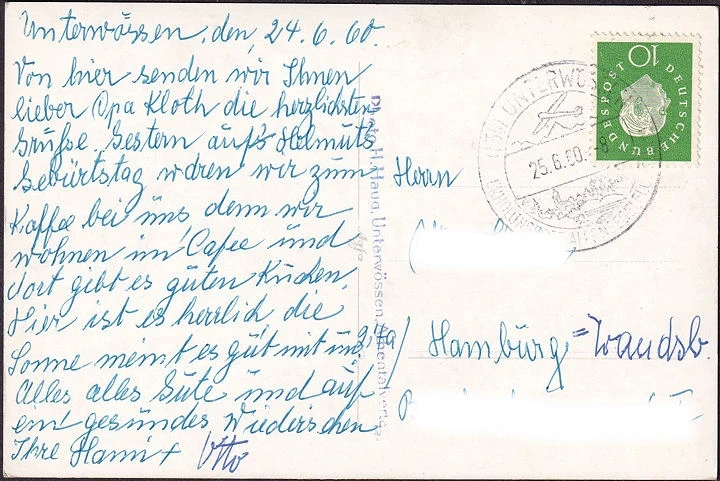 Unterwössen, den 24.6.60.
Von hier senden wir Ihnen
lieber Opa Kloth die herzlichsten
Grüsse. Gestern auf's Helmut's
Gebürtstag waren wir zum
Kaffee bei uns, denn wir
wohnen im Cafee und
dort gibt es guten Kuchen.
Hier ist es herrlich die
Sonne meint es gut mit uns
Alles alles Gute und auf
ein gesundes Wiedersehen
Ihre Hanni + Otto
Photo H. Haug, Unterwössen,
DEUTSCHE BUNDESPOST
10
UNTERWÖSSEN
25.6.60.-8
Herrn
Hamburg=Wandsb.